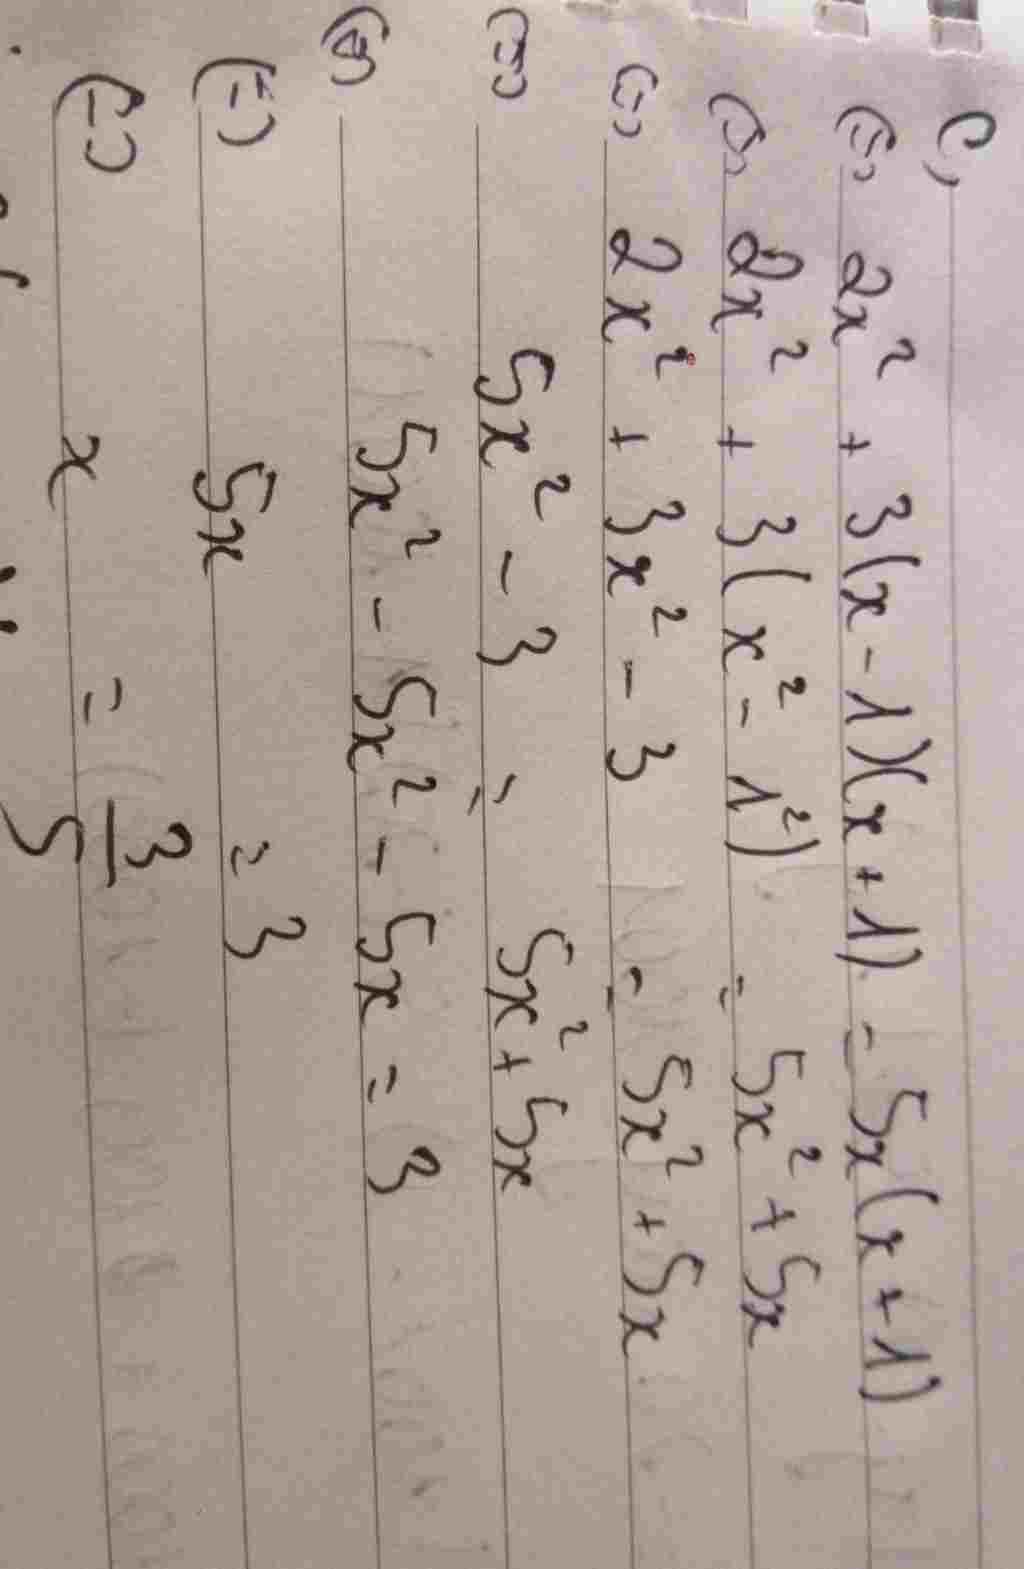 c,
(=) 2x² + 3(x - 1)(x + 1) = 5x(x + 1)
(=) 2x² + 3(x² - 1²) = 5x² + 5x
(=) 2x² + 3x² - 3 = 5x² + 5x
(=) 5x² - 3 = 5x² + 5x
(=) 5x² - 5x² - 5x = 3
(=) 5x = 3
(=) x = 3/5